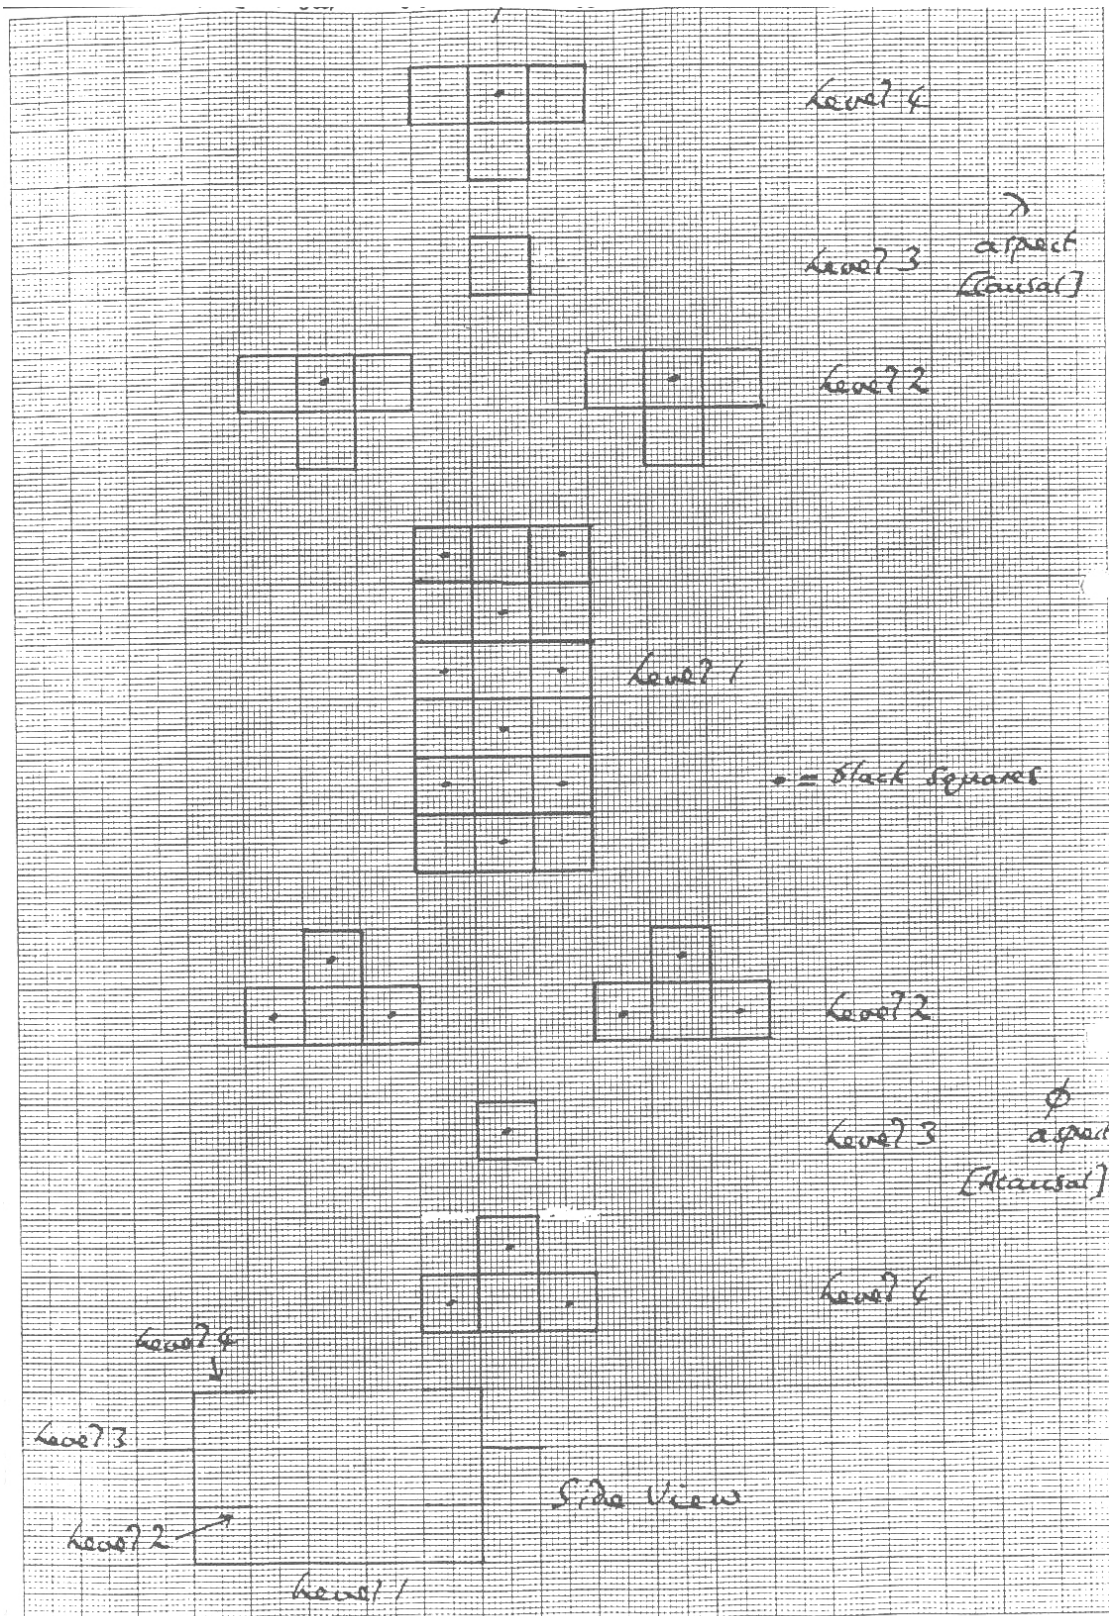 Level 4
aspect
Level 3
[Causal]
Level 2
Level 1
• = black squares
Level 2
φ
Level 3
aspect
[Acausal]
Level 4
Level 4
Level 3
Side View
Level 2
Level 1